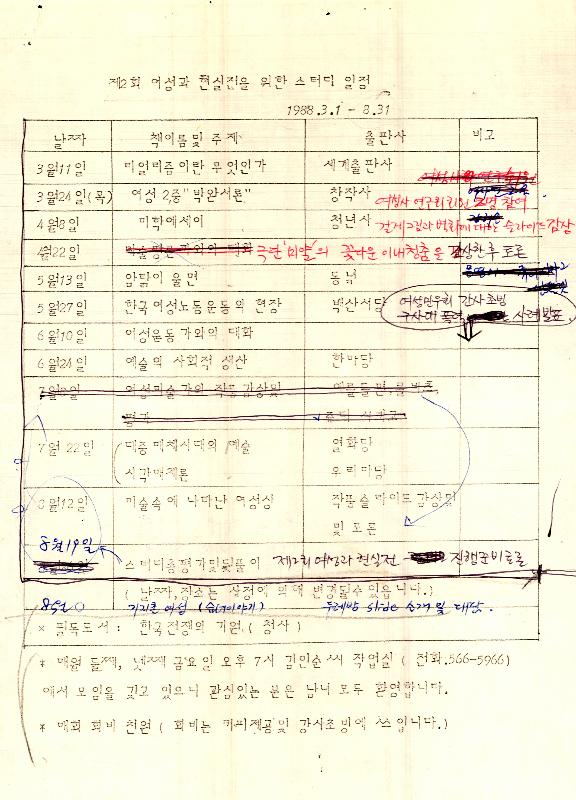 제2회 여성과 현실전을 위한 스터디 일정
1988.3.1 - 8.31
날짜 책이름및 주제 출판사 비고
3월11일 미얼리즘이란 무엇인가 세계출판사
3월24일(목) 여성 2,중 "박완서론" 창작사 여성사 연구회회원 2명 참여
4월8일 미학에세이 청년사 걸개그림과 벽화에 대한 슬라이드 감상
4월22일 극단 '미얄'의 꽃다운 이내청춘을 감상한후 토론
5월13일 암탉이 울면 동녘
5월27일 한국여성노동운동의 현장 백산서당 여성민우회 간사초빙
구사대 폭력 사례발표
6월10일 여성운동가와의 대화
6월24일 예술의 사회적 생산 한마당
7월8일 여성미술가의 작품감상및
평가
7월 22일 대중매체시대의 예술 열화당
시각매체론 우리마당
8월12일 미술속에 나타난 여성상 작품슬라이드 감상및
및 토론
8월19일 스터디총평가및뒷풀이 제2회 여성과 현실전 진행준비토론
( 날짜,장소는 사정에 의해 변경될수있읍니다.)
기지촌 여성 두레방 slide 소개 및 대담.
* 필독도서 : 한국전쟁의 기원.( 청사 )
* 매월 둘째, 넷째 금요일 오후 7시 김인순씨 작업실 ( 전화.566-5966)
에서 모임을 갖고 있으니 관심있는 분은 남녀 모두 환영합니다.
* 매회 회비 천원 ( 회비는 커피제공및 강사초빙에 쓰입니다.)